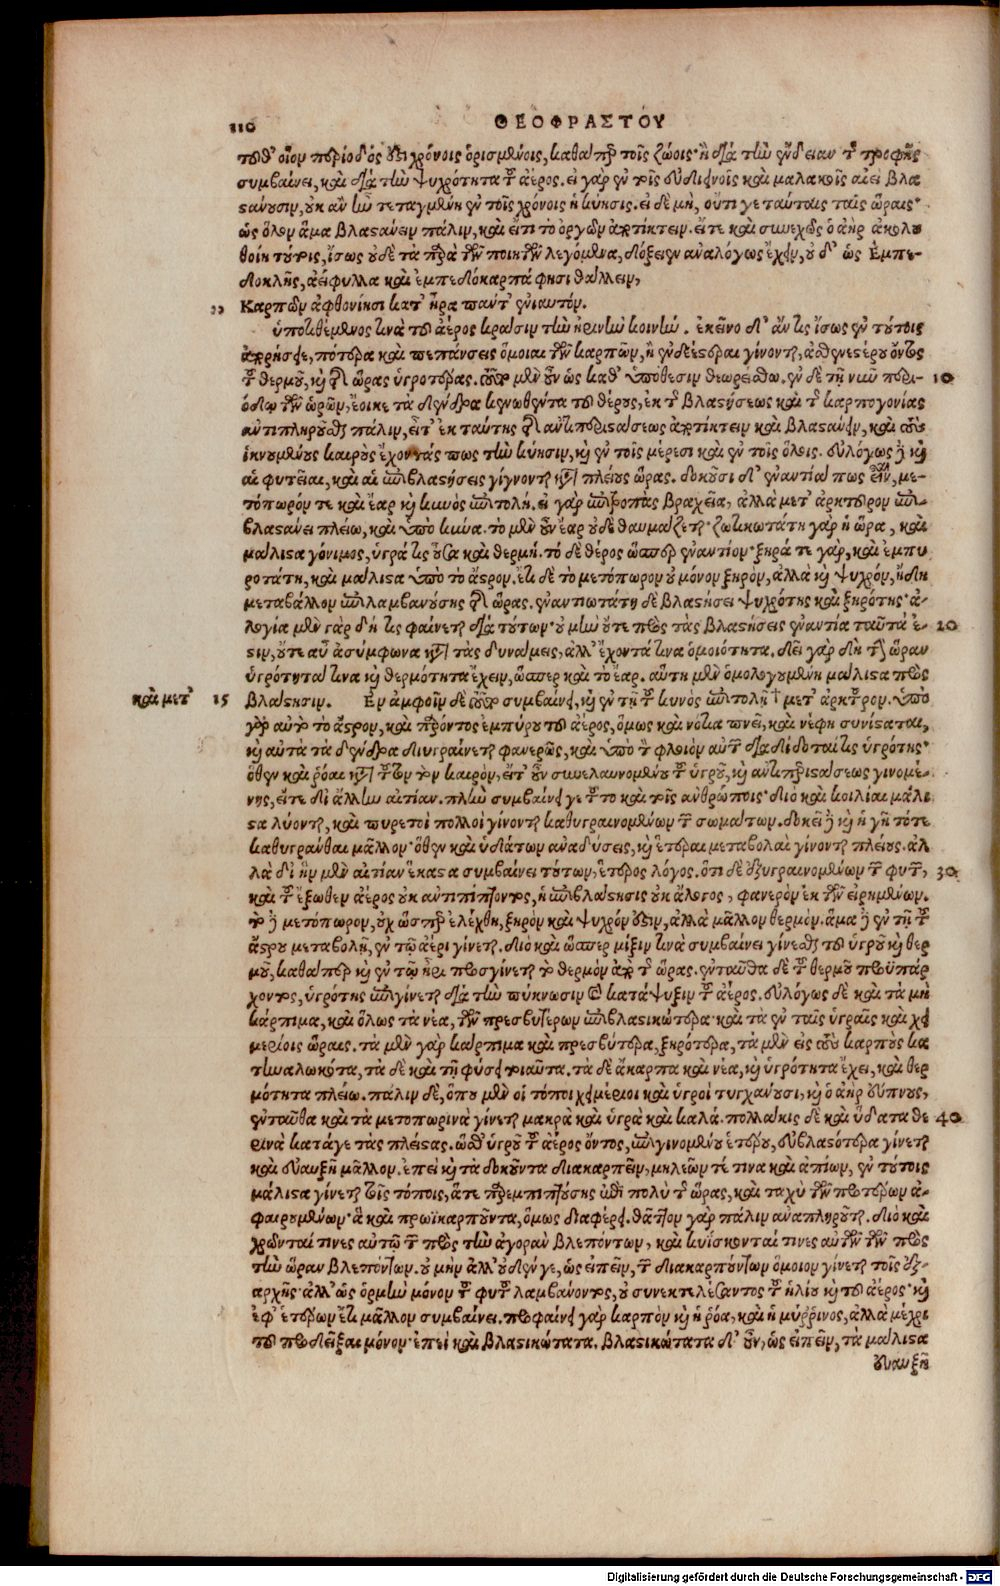 110 ΘΕΟΦΡΑΣΤΟΥ
τοῦθ' οἷον περίοδός ἐστι χρόνοις ὁρισμένοις, καθάπερ τοῖς ζώοις· ἢ διὰ τὴν ἔνδειαν τῆς τροφῆς
συμβαίνει, καὶ διὰ τὴν ψυχρότητα τοῦ ἀέρος. εἰ γὰρ ἐν τοῖς εὐδιεινοῖς καὶ μαλακοῖς αἰεὶ βλα
στάνουσιν, οὐκ ἂν ἦν τεταγμένη ἐν τοῖς χρόνοις ἡ κύησις. εἰ δὲ μὴ, οὔτι γε ταύταις ταῖς ὥραις·
ὡς ὅλον ἅμα βλαστάνειν πάλιν, καὶ ἔτι τὸ ὀργῶν ἀποτίκτειν. εἴτε καὶ συνεχῶς ὁ ἀὴρ ἀκολου
θοίη τούτοις, ἴσως οὐδὲ τὰ παρὰ τῶν ποιητῶν λεγόμενα, δόξειεν ἀναλόγως ἔχειν, οὐδ' ὡς Ἐμπε-
δοκλῆς, ἀείφυλλα καὶ ἐμπεδόκαρπά φησι θάλλειν,
Καρπῶν ἀφθονίησι κατ' ἦρα πάντ' ἐνιαυτόν.
ὑποτιθέμενος τινὰ τοῦ ἀέρος κρᾶσιν τὴν ἠρινὴν κοινήν. ἐκεῖνο δ' ἄν τις ἴσως ἐν τούτοις
ἀπορήσειε, πότερα καὶ πεπάνσεις ὅμοιαι τῶν καρπῶν, ἢ ἐνδεέστεραι γίνονται, ἀσθενεστέρου ὄντος
τοῦ θερμοῦ, καὶ τῆς ὥρας ὑγροτέρας. τοῦτο μὲν οὖν ὡς καθ' ὑπόθεσιν θεωρείσθω. ἐν δὲ τῇ νῦν περι- 10
όδῳ τῶν ὡρῶν, ἔοικε τὰ δένδρα κενωθέντα τοῦ θέρους, ἐκ τῆς βλαστήσεως καὶ τῆς καρπογονίας
ἀντιπληροῦσθαι πάλιν, εἶτ' ἐκ ταύτης τῆς ἀντιπεριστάσεως ἀποτίκτειν καὶ βλαστάνειν, καὶ τοὺς
ἱκνουμένους καιροὺς ἔχοντάς πως τὴν κύησιν, καὶ ἐν τοῖς μέρεσι καὶ ἐν τοῖς ὅλοις. εὐλόγως δὲ καὶ
αἱ φυτεῖαι, καὶ αἱ ἐπιβλαστήσεις γίγνονται κατὰ πλείους ὥρας. δοκοῦσι δ' ἐναντίαι πως εἶναι, με-
τόπωρόν τε καὶ ἔαρ καὶ κυνὸς ἐπιτολή. εἰ γὰρ ἐπὶ τροπαῖς βραχεῖα, ἀλλὰ μετ' ἀρκτοῦρον ἐπι-
βλαστάνει πλείω, καὶ ὑπὸ κύνα. τὸ μὲν οὖν ἔαρ οὐδὲ θαυμάζεται· ζωτικωτάτη γὰρ ἡ ὥρα, καὶ
μάλιστα γόνιμος, ὑγρά τις οὖσα καὶ θερμή. τὸ δὲ θέρος ὥσπερ ἐναντίον· ξηρά τε γὰρ, καὶ ἐμπυ
ροτάτη, καὶ μάλιστα ὑπὸ τὸ ἄστρον. ἔτι δὲ τὸ μετόπωρον οὐ μόνον ξηρὸν, ἀλλὰ καὶ ψυχρόν, ἤδη
μεταβάλλον ἐπιλαμβανούσης τῆς ὥρας. ἐναντιωτάτη δὲ βλαστήσει ψυχρότης καὶ ξηρότης· ἀ-
λογία μὲν γὰρ δή τις φαίνεται διὰ τούτων· οὐ μὴν οὔτε πρὸς τὰς βλαστήσεις ἐναντία ταῦτά ἐ- 20
στιν, οὔτε αὖ ἀσύμφωνα κατὰ τὰς δυνάμεις, ἀλλ' ἔχοντά τινα ὁμοιότητα. δεῖ γὰρ δὴ τὴν ὥραν
ὑγρότητά τινα καὶ θερμότητα ἔχειν, ὥσπερ καὶ τὸ ἔαρ. αὕτη μὲν ὁμολογουμένη μάλιστα πρὸς
καὶ μετ' 15 βλάστησιν. Ἐν ἀμφοῖν δὲ τοῦτο συμβαίνει, καὶ ἐν τῇ τοῦ κυνὸς ἐπιτολῇ † μετ' ἀρκτοῦρον. ὑπὸ
γὰρ αὐτὸ τὸ ἄστρον, καὶ παρόντος ἐμπύρου τοῦ ἀέρος, ὅμως καὶ νότια πνεῖ, καὶ νέφη συνίσταται,
καὶ αὐτὰ τὰ δένδρα διυγραίνεται φανερῶς, καὶ ὑπὸ τὸν φλοιὸν αὐτῶν διαδίδοταί τις ὑγρότης·
ὅθεν καὶ ῥόαι κατὰ τοῦτον τὸν καιρόν, εἴτ' οὖν συνελαυνομένου τοῦ ὑγροῦ, καὶ ἀντιπεριστάσεως γινομέ-
νης, εἴτε δι' ἄλλην αἰτίαν. πλὴν συμβαίνει γε τοῦτο καὶ τοῖς ἀνθρώποις· διὸ καὶ κοιλίαι μάλι
στα λύονται, καὶ πυρετοὶ πολλοὶ γίνονται καθυγραινομένων τῶν σωμάτων. δοκεῖ δὲ καὶ ἡ γῆ τότε
καθυγραίνεσθαι μᾶλλον· ὅθεν καὶ ὑδάτων ἀναδύσεις, καὶ ἕτεραι μεταβολαὶ γίνονται πλείους. ἀλ
λὰ δι' ἣν μὲν αἰτίαν ἕκαστα συμβαίνει τούτων, ἕτερος λόγος. ὅτι δὲ ἐξυγραινομένων τῶν φυτῶν, 30
καὶ τοῦ ἔξωθεν ἀέρος οὐκ ἀντιπίπτοντος, ἡ ἐπιβλάστησις οὐκ ἄλογος, φανερὸν ἐκ τῶν εἰρημένων.
τὸ δὲ μετόπωρον, οὐχ ὥσπερ ἐλέχθη, ξηρὸν καὶ ψυχρόν ἐστιν, ἀλλὰ μᾶλλον θερμὸν. ἅμα δὲ ἐν τῇ τοῦ
ἄστρου μεταβολῇ, ἐν τῷ ἀέρι γίνεται. διὸ καὶ ὥσπερ μίξιν τινὰ συμβαίνει γίνεσθαι τοῦ ὑγροῦ καὶ θερ
μοῦ, καθάπερ καὶ ἐν τῷ ἦρι προσγίνεται τὸ θερμὸν ἀπὸ τῆς ὥρας. ἐνταῦθα δὲ τοῦ θερμοῦ προϋπάρ
χοντος, ὑγρότης ἐπιγίνεται διὰ τὴν πύκνωσιν καὶ κατάψυξιν τοῦ ἀέρος. εὐλόγως δὲ καὶ τὰ μὴ
κάρπιμα, καὶ ὅλως τὰ νέα, τῶν πρεσβυτέρων ἐπιβλαστικώτερα· καὶ τὰ ἐν ταῖς ὑγραῖς καὶ χει
μερίοις ὥραις. τὰ μὲν γὰρ κάρπιμα καὶ πρεσβύτερα, ξηρότερα, τὰ μὲν εἰς τοὺς καρποὺς κα
τηναλωκότα, τὰ δὲ καὶ τῇ φύσει τοιαῦτα. τὰ δὲ ἄκαρπα καὶ νέα, καὶ ὑγρότητα ἔχει, καὶ θερ
μότητα πλείω. πάλιν δὲ, ὅπου μὲν οἱ τόποι χειμέριοι καὶ ὑγροὶ τυγχάνουσι, καὶ ὁ ἀὴρ εὔπνους,
ἐνταῦθα καὶ τὰ μετοπωρινὰ γίνεται μακρὰ καὶ ὑγρὰ καὶ καλά. πολλάκις δὲ καὶ ὕδατα θε 40
ρινὰ κατάγε τὰς πλείστας. ὥσθ' ὑγροῦ τοῦ ἀέρος ὄντος, ἐπιγινομένου ἑτέρου, εὐβλαστότερα γίνεται
καὶ εὐαυξῆ μᾶλλον. ἐπεὶ καὶ τὰ δοκοῦντα διακαρπεῖν, μηλεῶν τέ τινα καὶ ἀπίων, ἐν τούτοις
μάλιστα γίνεται τοῖς τόποις, ἅτε παρεμπιπτούσης ἐπὶ πολὺ τῆς ὥρας, καὶ ταχὺ τῶν προτέρων ἀ-
φαιρουμένων· ἃ καὶ πρωϊκαρποῦντα, ὅμως διαφέρει. θᾶττον γὰρ πάλιν ἀναπληροῦται. διὸ καὶ
χρῶνταί τινες αὐτῷ τῶν πρὸς τὴν ἀγορὰν βλεπόντων, καὶ κυΐσκονταί τινες αὐτῶν τῶν πρὸς
τὴν ὥραν βλεπόντων. οὐ μὴν ἀλλ' οὐδέν γε, ὡς εἰπεῖν, τῶν διακαρπούντων ὅμοιον γίνεται τοῖς ἐξ-
αρχῆς· ἀλλ' ὡς ὁρμὴν μόνον τοῦ φυτοῦ λαμβάνοντος, οὐ συνεκτελέσαντος τοῦ ἡλίου καὶ τοῦ ἀέρος· καὶ
ἐφ' ἑτέρων ἔτι μᾶλλον συμβαίνει. προφαίνει γὰρ καρπὸν καὶ ἡ ῥόα, καὶ ἡ μύρῥινος, ἀλλὰ μέχρι
τοῦ προδεῖξαι μόνον· ἐπεὶ καὶ βλαστικώτατα. βλαστικώτατα δ' οὖν, ὡς εἰπεῖν, τὰ μάλιστα
εὐαυξῆ
Digitalisierung gefördert durch die Deutsche Forschungsgemeinschaft - DFG